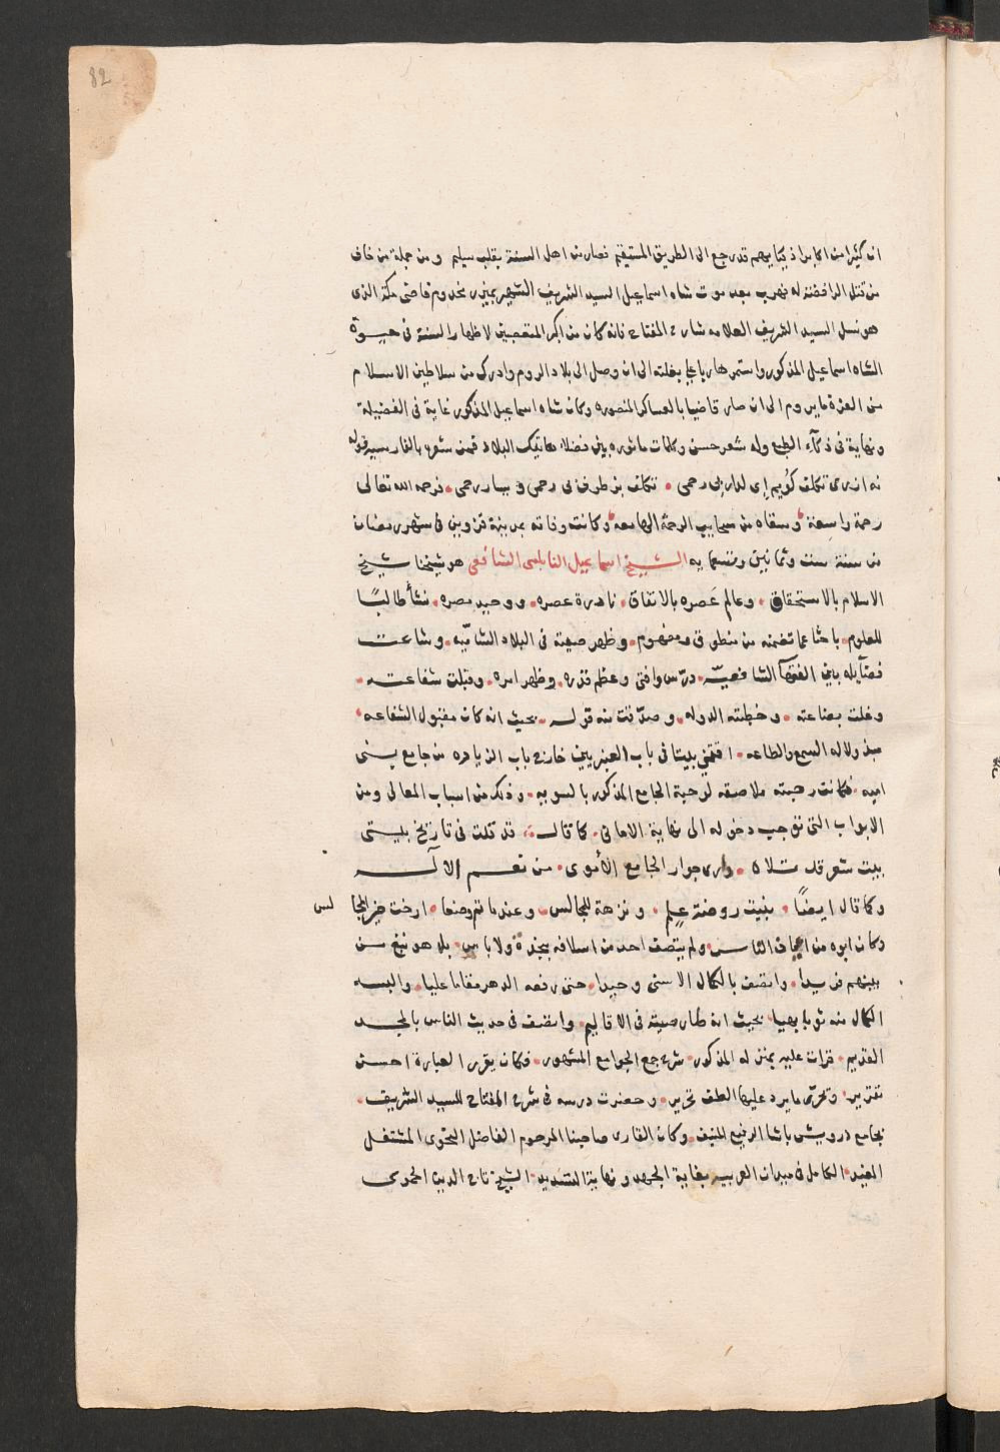 82
ان كثيرا من اكابر اذكيايهم قد رجع الى الطريق المستقيم فصار من اهل السنة بقلب سليم ومن جملة من خاف
من قتل الرافضة له فهرب بعد موت شاه اسماعيل السيد الشريف الشهير بميرزه مخدوم قاضى مكة الذى
هو نسل السيد الشريف العلامه شارح المفتاح فانه كان من اكبر المتعصبين لاظهار السنة فى حيوة
الشاه اسماعيل المذكور واستمر هاربا على بغلته الى ان وصل الى بلاد الروم وادرك من سلاطين الاسلام
من العزة ما يروم الى ان صار قاضيا بالعساكر المنصوره وكان شاه اسماعيل المذكور غاية فى الفضيلة
ونهاية فى ذكآء الطبع وله شعر حسن وكلمات ماثوره بين فضلاء هاتيك البلاد فمن شعره بالفارسيه قوله
رحمى فرحمه الله تعالى
رحمة واسعة وسقاه من سحايب الرحمة الهامعه وكانت وفاته بمدينة قزوين فى شهر رمضان
من سنة ست وثمانين وتسعمايه الشيخ اسماعيل النابلسى الشافعى هو شيخنا شيخ
الاسلام بالاستحقاق وعالم عصره بالاتفاق نادرة عصره ووحيد مصره نشأ طالبًا
للعلوم باحثا عما تضمنه من منطوق ومفهوم وظهر صيته فى البلاد الشاميّه وشاعت
فضآيله بين الفقهآ الشافعيّه درّس وافتى وعظم قدره وظهر امره وقبلت شفاعته
وغلت بضاعته وخطبته الدوله وصدّقت منه قوله بحيث انه كان مقبول الشفاعه
مبذولا له السمع والطاعه اقتنى بيتا فى باب العنبريين خارج باب الزياده من جامع بنى
اميه فكانت رحبته ملاصقه لرحبة الجامع المذكور بالسويه وذلك من اسباب المعالى ومن
الابواب التى توجب دخوله الى نهاية الامانى كما قال قد قلت فى تاريخ بيتى
بيت شعر قد تلاه دارى جوار الجامع الأموى من نعم الاله
وكما قال ايضًا بنيت روضة علم ونزهة للمجالس وعندما تم وضعا ارخت خير المجا لس
وكان ابوه من اعيان الناس ولم يتصف احد من اسلافه بنجدة ولا باس بل هو نبغ من
بينهم فريدا واتصف بالكمال الاسنى وحيدا حتى رفعه الدهر مقاما عليا والبسه
الكمال منه ثوبا بهيا بحيث انه طار صيته فى الاقاليم واتصف فى حديث الناس بالمجد
القديم قرات عليه بمنزله المذكور شرح جمع الجوامع المشهور فكان يقرر العبارة احسن
تقرير ويحرّر ما يرد عليها الطف تحرير وحضرت درسه فى شرح المفتاح للسيد الشريف
بجامع درويش باشا الرفيع المنيف وكان القارى صاحبنا المرحوم الفاضل النحوى المشتغل
المفيد الكامل فى ميدان العربيه بغاية الجهد ونهاية التسديد الشيخ تاج الدين الحموى